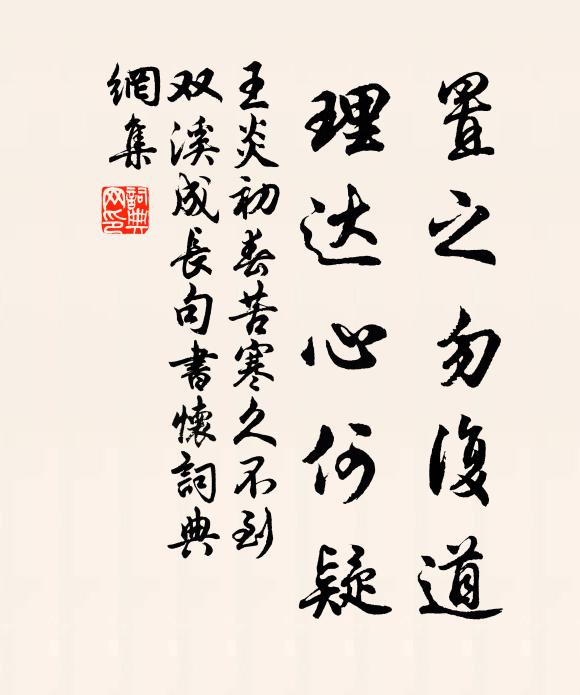 置之勿復道
理达心何疑
王炎初春苦寒久不到
双溪成長句書懷詞典
網集
詞典
网印